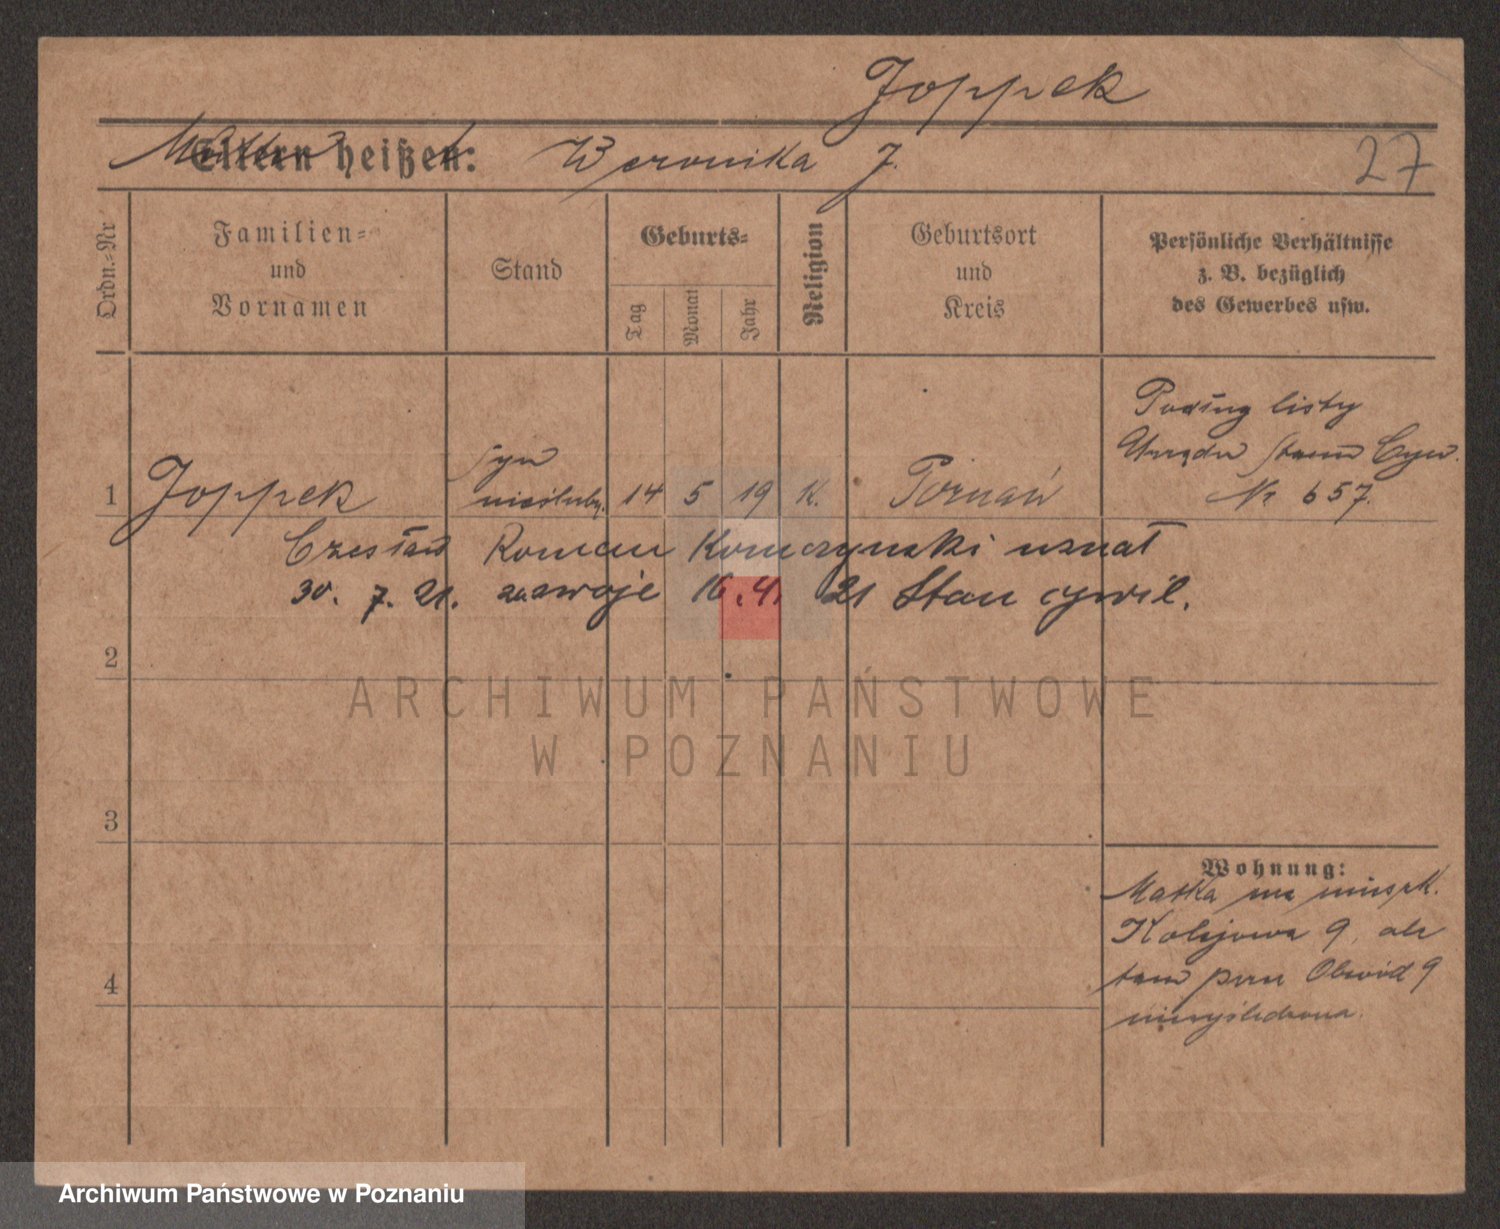 Joppek
Mutter
Eltern heißen: Weronika J.
27
Ordn.-Nr
Familien-
und
Vornamen
Stand
Geburts-
Tag
Monat
Jahr
Religion
Geburtsort
und
Kreis
Persönliche Verhältnisse
z. B. bezüglich
des Gewerbes usw.
Podług listy
Urzędu Stanu Cyw.
Nr 657.
syn
1 Joppek nieślubn. 14 5 19 K. Poznań
Czesław Roman Komczynski uznał
30. 7. 21. za swoje 16. 4. 21 Stan cywil.
2
3
4
Wohnung:
Matka ma mieszk.
Kolejowa 9, ale
tam przez Obwód 9
niewyśledzona.
ARCHIWUM PAŃSTWOWE
W POZNANIU
Archiwum Państwowe w Poznaniu